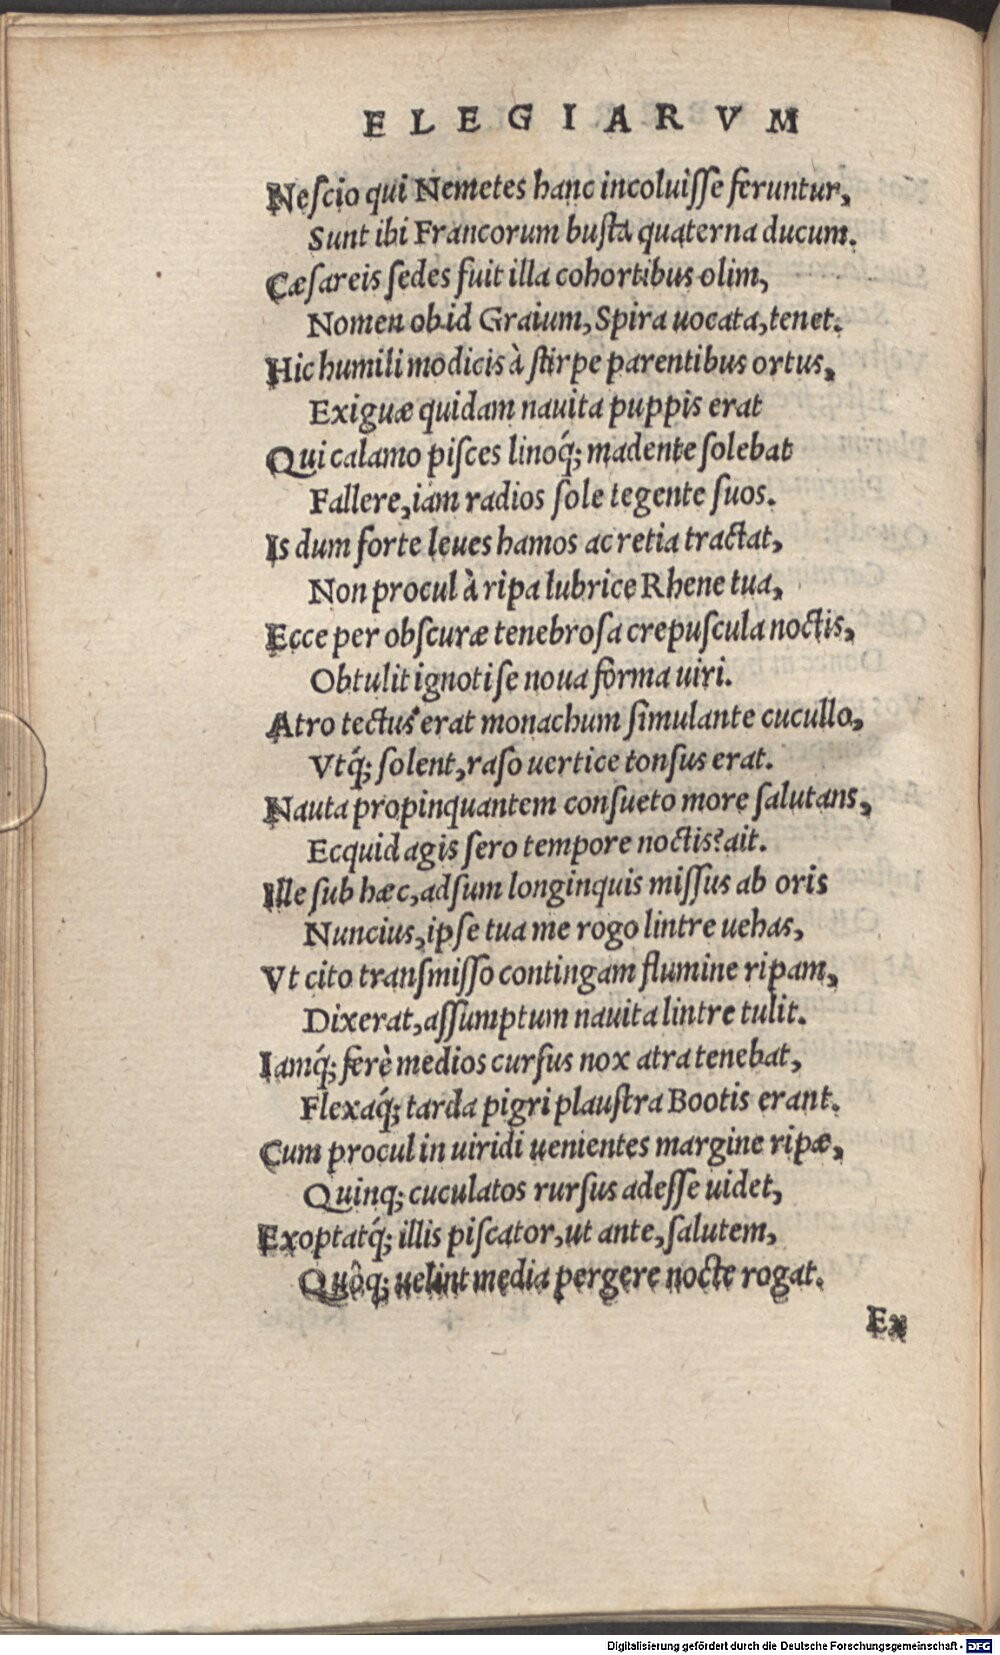 ELEGIARVM
Neſcio qui Nemetes hanc incoluiſſe feruntur,
Sunt ibi Francorum buſta quaterna ducum.
Cæſareis ſedes fuit illa cohortibus olim,
Nomen ob id Graium, Spira uocata, tenet.
Hic humili modicis à ſtirpe parentibus ortus,
Exiguæ quidam nauita puppis erat
Qui calamo piſces linoq́; madente ſolebat
Fallere, iam radios ſole tegente ſuos.
Is dum forte leues hamos ac retia tractat,
Non procul à ripa lubrice Rhene tua,
Ecce per obſcuræ tenebroſa crepuſcula noctis,
Obtulit ignoti ſe noua forma uiri.
Atro tectus erat monachum ſimulante cucullo,
Vtq́; ſolent, raſo uertice tonſus erat.
Nauta propinquantem conſueto more ſalutans,
Ecquid agis ſero tempore noctis? ait.
Ille ſub hæc, adſum longinquis miſſus ab oris
Nuncius, ipſe tua me rogo lintre uehas,
Vt cito tranſmiſſo contingam flumine ripam,
Dixerat, aſſumptum nauita lintre tulit.
Iamq́; ferè medios curſus nox atra tenebat,
Flexaq́; tarda pigri plauſtra Bootis erant.
Cum procul in uiridi uenientes margine ripæ,
Quinq; cuculatos rurſus adeſſe uidet,
Exoptatq́; illis piſcator, ut ante, ſalutem,
Quôq; uelint media pergere nocte rogat.
Ex
Digitalisierung gefördert durch die Deutsche Forschungsgemeinschaft - DFG